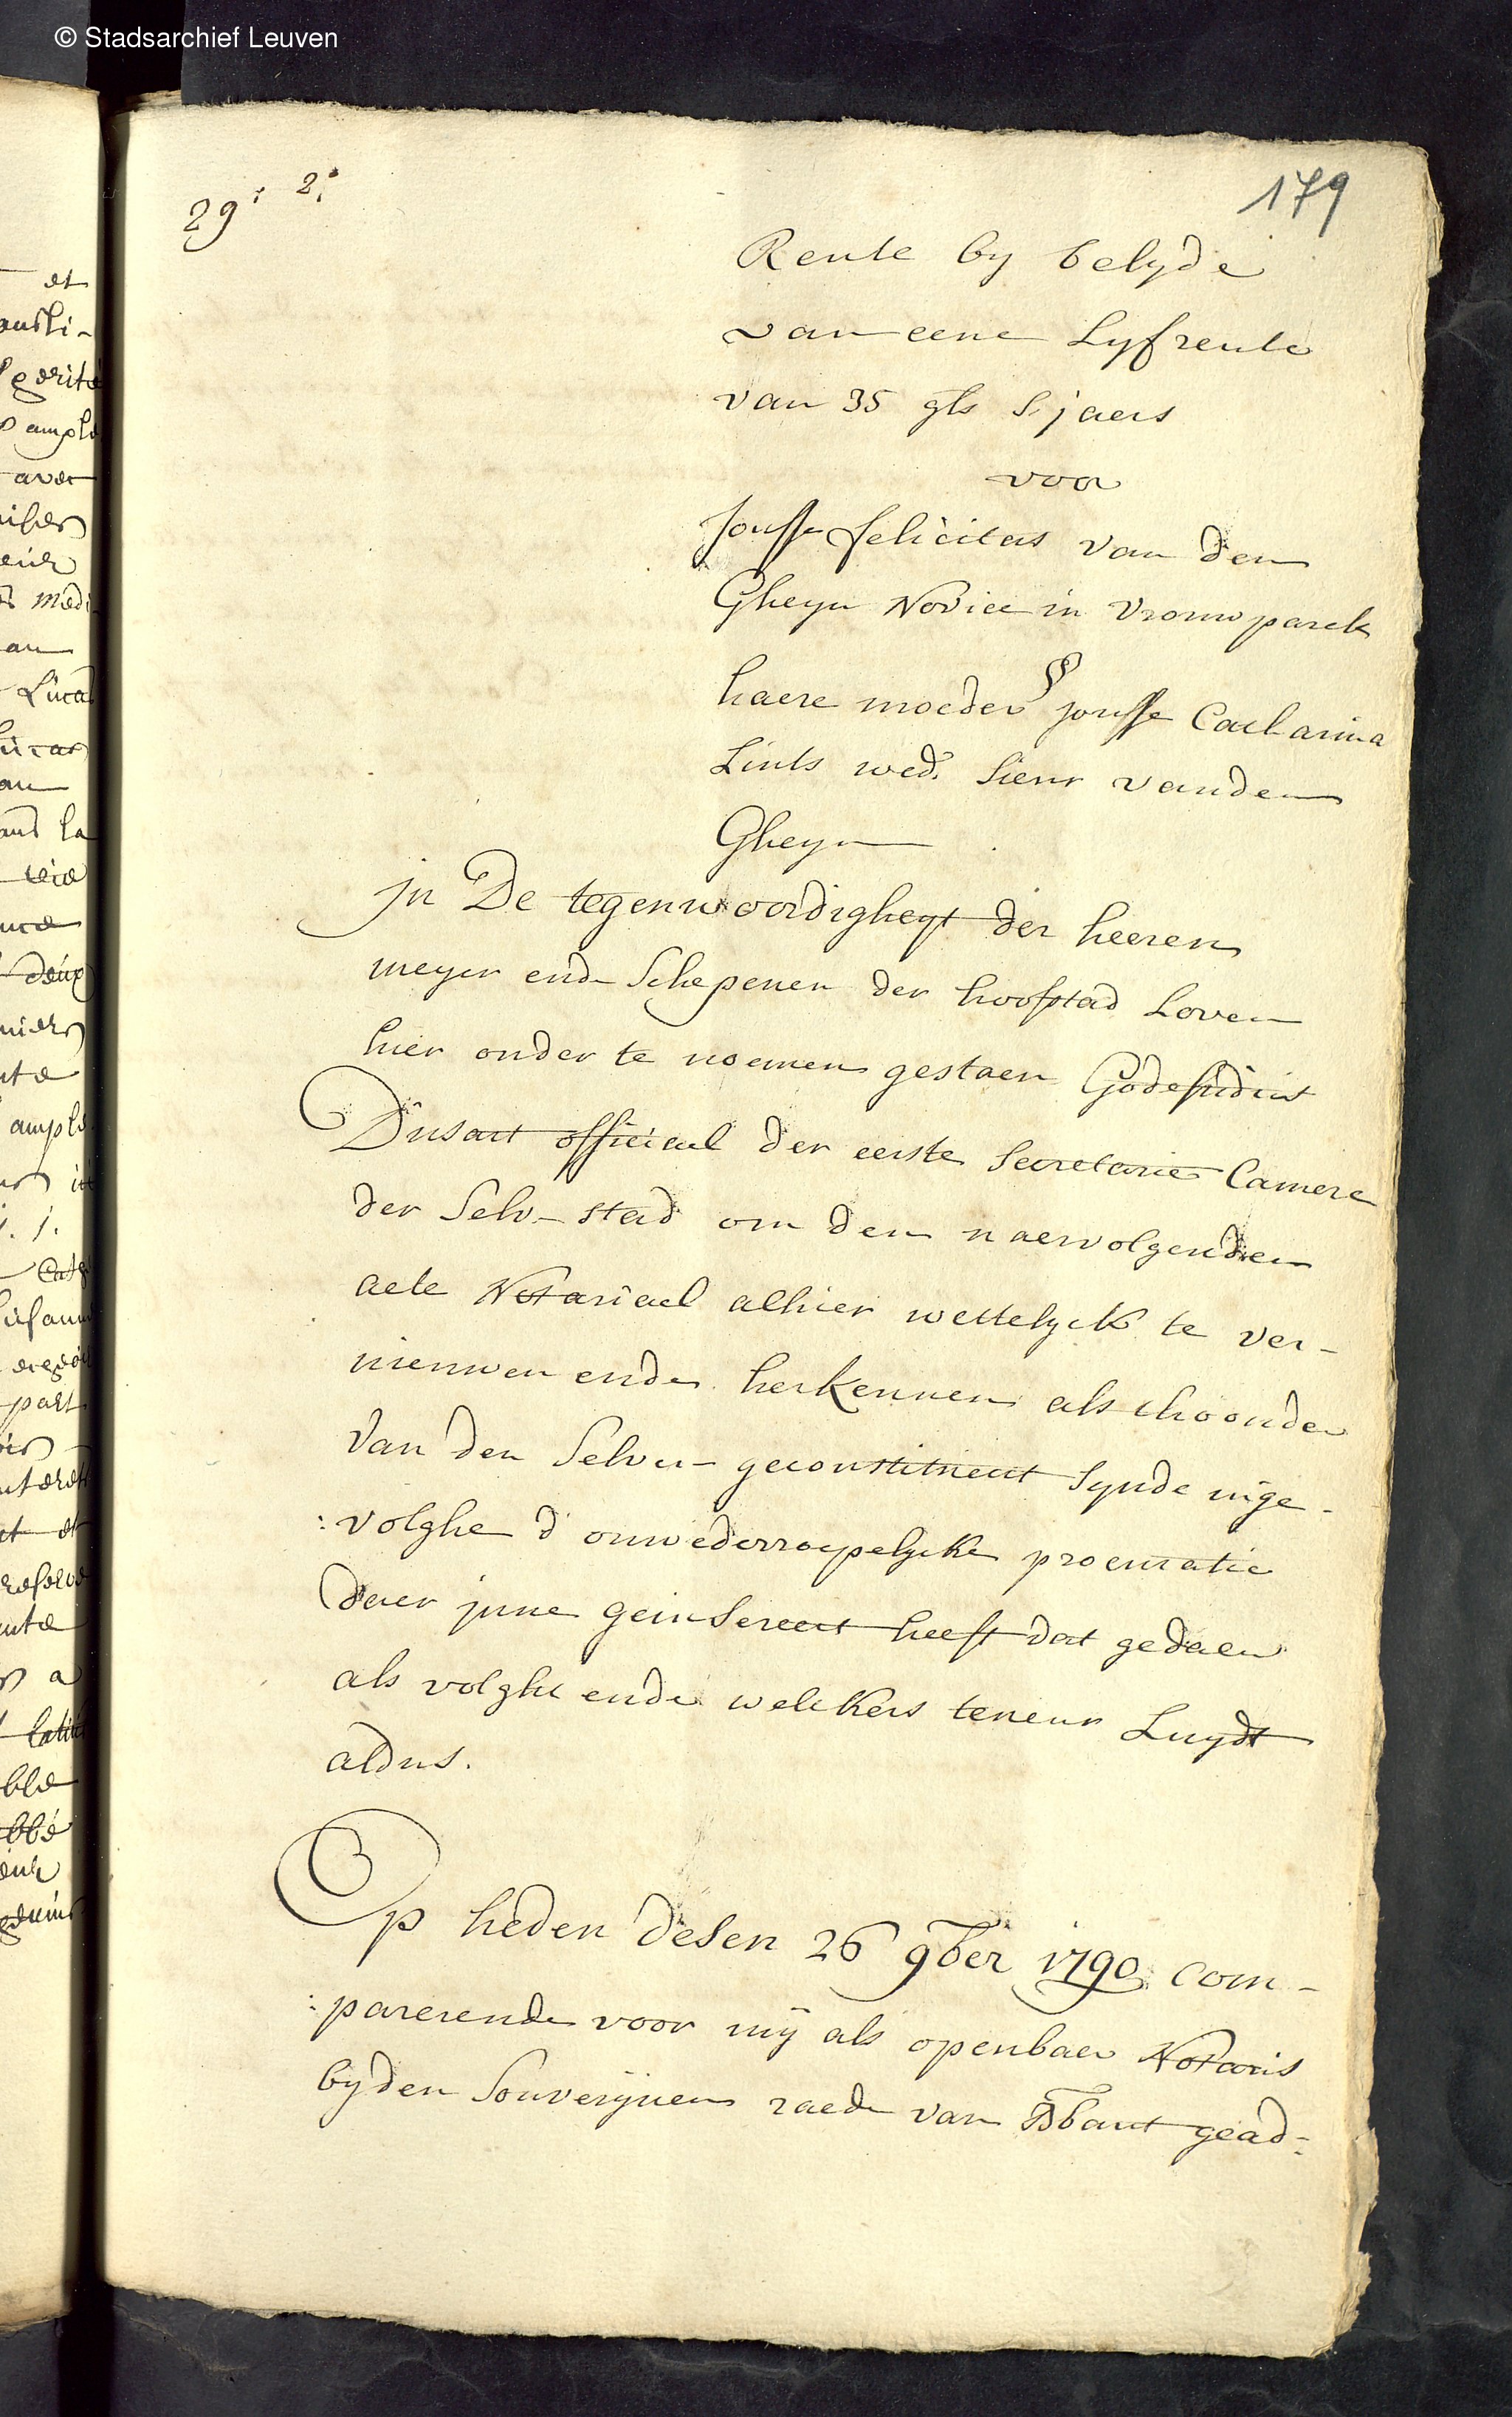 © Stadsarchief Leuven
29: 2:
179
Rente by belyde
van eene Lyfrente
van 35 gls s'jaers
voor
jouffe felicitas van den
Gheyn Novice in Vrouwparck
haere moeder § jouffe Catharina
Lints wed: Sieur vanden
Gheyn
jn De tegenwoordigheyt der heeren
meyer ende Schepenen der hoofstad Loven
hier onder te noemen gestaen
Dusart officiael der eerste Secretarie Camere
der Selve stad om den naervolgenden
acte Notariael alhier wettelyck te ver-
nieuwen ende herkennen als thoonder
van den Selven geconstitueert synde inge-
:volghe d'onwederroepelycke procuratie
daer inne geinsereert heeft dat gedaen
als volght ende welckers teneur Luydt
aldus.
Op heden desen 26 9ber 1790 com-
:parerende voor mij als openbaer Notaris
by den Souverynen raede van Bbant gead-
et
ampl
avec
au
Lucas
la
deux
ampl
part